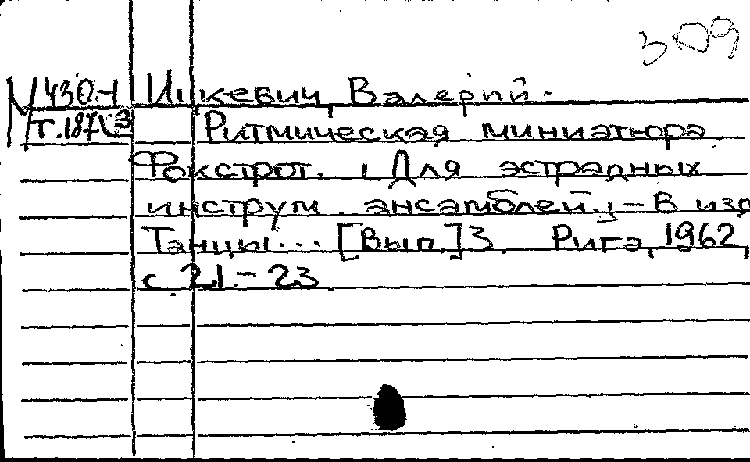 309
М 430-1 Ицкевич, Валерий.
Т.187\3 Ритмическая миниатюра
Фокстрот. [Для эстрадных
инструм. ансамблей]. - В изд
Танцы... [Вып.] 3. Рига, 1962,
с. 21.-23.